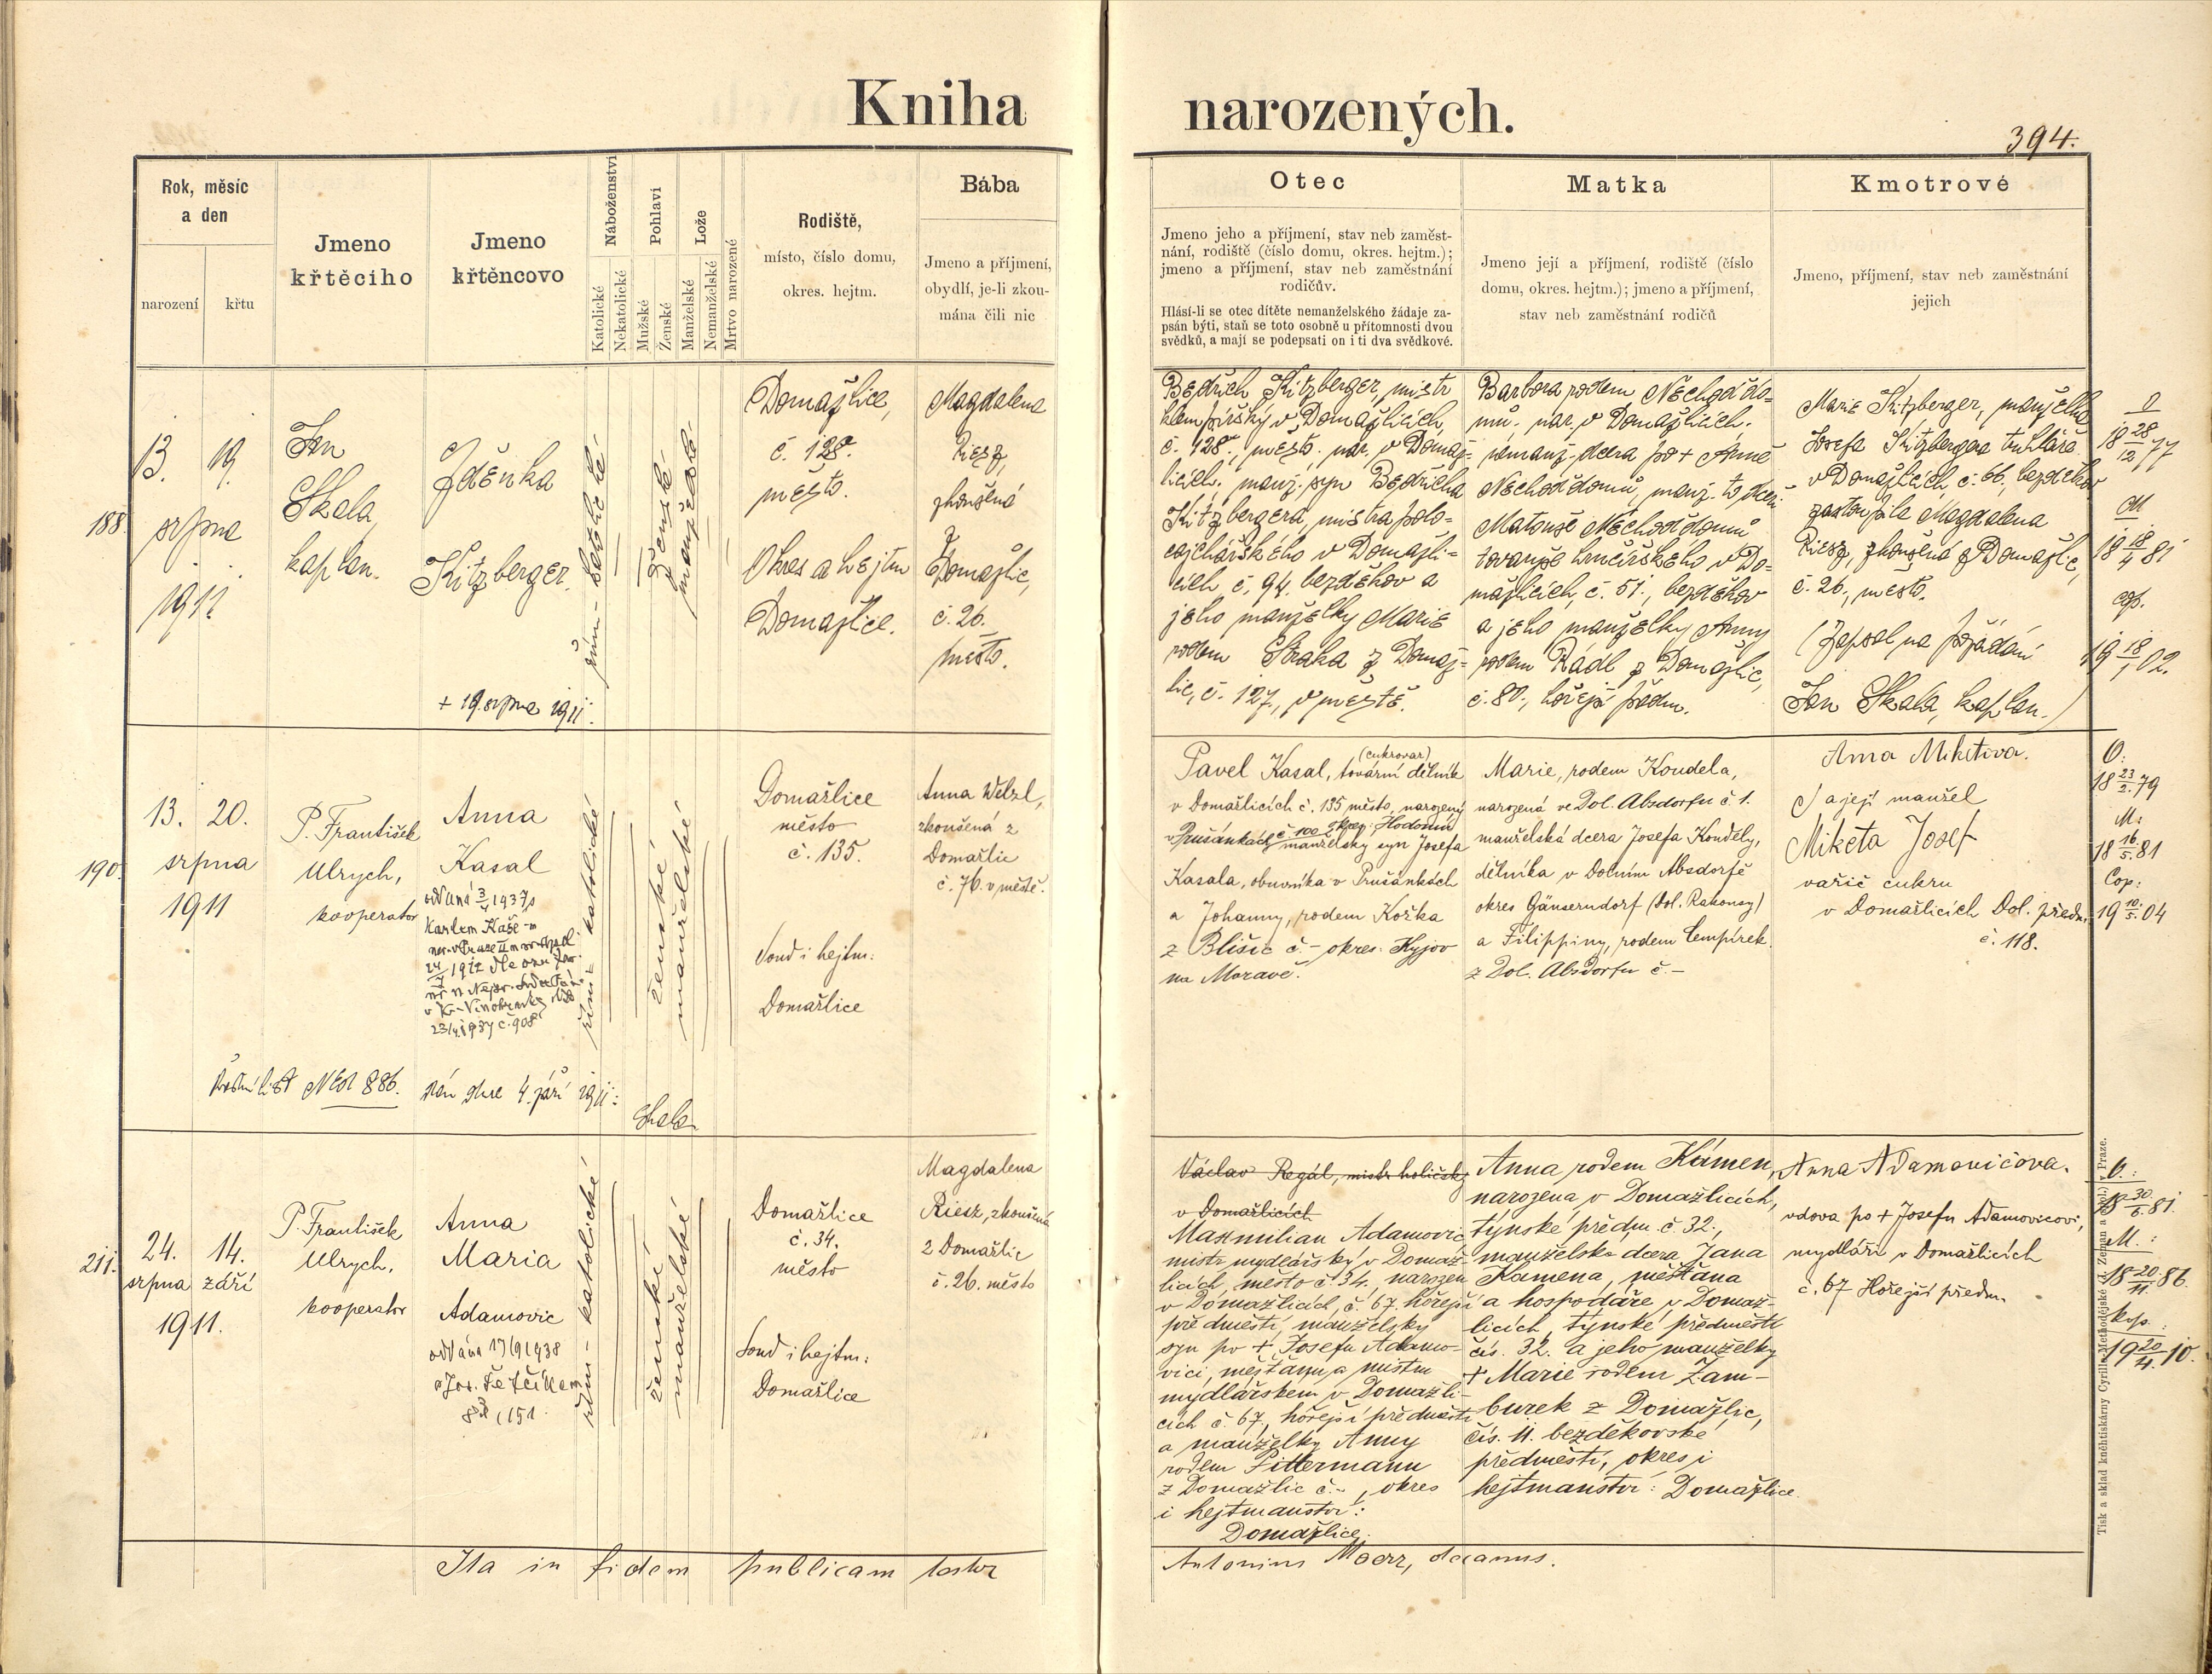 Kniha narozených.
394.
Rok, měsíc
a den
narození
křtu
Jmeno
křtěcího
Jmeno
křtěncovo
Náboženství
Katolické
Nekatolické
Pohlaví
Mužské
Ženské
Lože
Manželské
Nemanželské
Mrtvo narozené
Rodiště,
místo, číslo domu,
okres. hejtm.
Bába
Jmeno a příjmení,
obydlí, je-li zkou-
mána čili nic
Otec
Jmeno jeho a příjmení, stav neb zaměst-
nání, rodiště (číslo domu, okres. hejtm.);
jmeno a příjmení, stav neb zaměstnání
rodičův.
Hlásí-li se otec dítěte nemanželského žádaje za-
psán býti, staň se toto osobně u přítomnosti dvou
svědků, a mají se podepsati on i ti dva svědkové.
Matka
Jmeno její a příjmení, rodiště (číslo
domu, okres. hejtm.); jmeno a příjmení,
stav neb zaměstnání rodičů
Kmotrové
Jmeno, příjmení, stav neb zaměstnání
jejich
188.
13. 19.
srpna
1911
Jan
Skala,
kaplan.
Zděnka
Kitzberger.
+ 19. srpna 1911.
řím- katolické
ženské
manželské
Domažlice,
č. 128.
město.
Okres a hejtm
Domažlice.
Magdalena
Riesz,
zkoušená
z
Domažlic,
č. 26.
město.
Bedřich Kitzberger, mistr
klempířský v Domažlicích,
č. 128., měst. nar. v Domaž-
licích. manž. syn Bedřicha
Kitzbergera, mistra
v Domažli-
cích č. 94. bezděkov a
jeho manželky Marie
rodem Straka z Domaž-
lic, č. 127, v městě.
Barbora rodem Nechoďdo-
mů. nar. v Domažlicích.
nemanž. dcera po + Anně
Nechoďdomů, manž. to dceři
Matouše Nechoďdomů
tovaryše hrnčířského v Do-
mažlicích, č. 51., bezděkov
a jeho manželky Anny
rodem Rádl z Domažlic,
č. 80., hořejší předm.
Marie Kitzberger, manželka
Josefa Kitzbergera truhláře
v Domažlicích, č. 66., bezděkov
zastoupila Magdalena
Riesz, zkoušená z Domažlic,
č. 26., město.
(Zapsal na požádání
Jan Skala, kaplan.)
O
18 28/12 77
M
18 18/4 81
cop.
19 18/1 02.
190.
13. 20.
srpna
1911
P. František
Ulrych,
kooperator
Anna
Kasal
oddaná 3/4 1937 s
Karlem
23/4 1937 č. 908
křestní list No 886. dán dne 4. září 1911:
Skala
řím- katolické
ženské
manželské
Domažlice
město
č. 135.
Soud i hejtm:
Domažlice
Anna Welzl,
zkoušená z
Domažlic
č. 76. v městě.
(cukrovar)
Pavel Kasal, tovární dělník
v Domažlicích č. 135 město, narozený
v Prušánkách č. 100 okres. Hodonín
manželský syn Josefa
Kasala, obuvníka v Prušánkách
a Johanny, rodem Kořka
z Blišic č - okres. Kyjov
na Moravě.
Marie, rodem Koudela,
narozená ve Dol. Absdorfu č 1.
manželská dcera Josefa Koudely,
dělníka v Dolním Absdorfě
okres Gänserndorf (Dol. Rakousy)
a Filippiny, rodem Tempírek.
z Dol. Absdorfu č. -
Anna Miketova.
a její manžel
Miketa Josef
vařič cukru
v Domažlicích Dol. předm.
č. 118.
O:
18 23/2 79
M:
18 16/5 81
Cop:
19 10/5 04
211.
24. 14.
srpna září
1911.
P. František
Ulrych,
kooperator
Anna
Maria
Adamovic
oddána 17/9 1938
s Jos. Řeřčíkem
řím- katolické
ženské
manželské
Domažlice
č. 34.
město
Soud i hejtm:
Domažlice
Magdalena
Riesz, zkoušená
z Domažlic
č. 26. město
Václav Regál, mistr holičský
v Domažlicích
Maxmilian Adamovic
mistr mydlářský v Domaž-
licích, město č. 34, narozen
v Domažlicích, č. 67. hořejší
předměstí, manželský
syn po + Josefu Adamo-
vici, měšťanu a mistru
mydlářském v Domažli-
cích č. 67., hořejší předměstí
a manželky Anny
rodem Pittermann
z Domažlic č. -, okres
i hejtmanství:
Domažlice.
Anna rodem Kámen,
narozena v Domažlicích,
týnské předm. č. 32.,
manželska dcera Jana
Kamena, měšťana
a hospodáře v Domaž-
licích, týnské předměstí
čís. 32. a jeho manželky
+ Marie rodem Žam-
burek z Domažlic,
čís. 11. bezděkovské
předměstí, okres i
hejtmanství: Domažlice.
Anna Adamovicova.
vdova po + Josefu Adamovicovi,
mydláři v Domažlicích
č. 67 Hořejší předm.
O.:
18 30/6 81.
M.:
18 20/11 86.
kop.:
19 20/4 10.
Ita in fidem publicam testor
Antonius Maerz, decanus.
Tisk a sklad knihtiskárny Cyrillo-Methodějské (J. Zeman a spol.) v Praze.